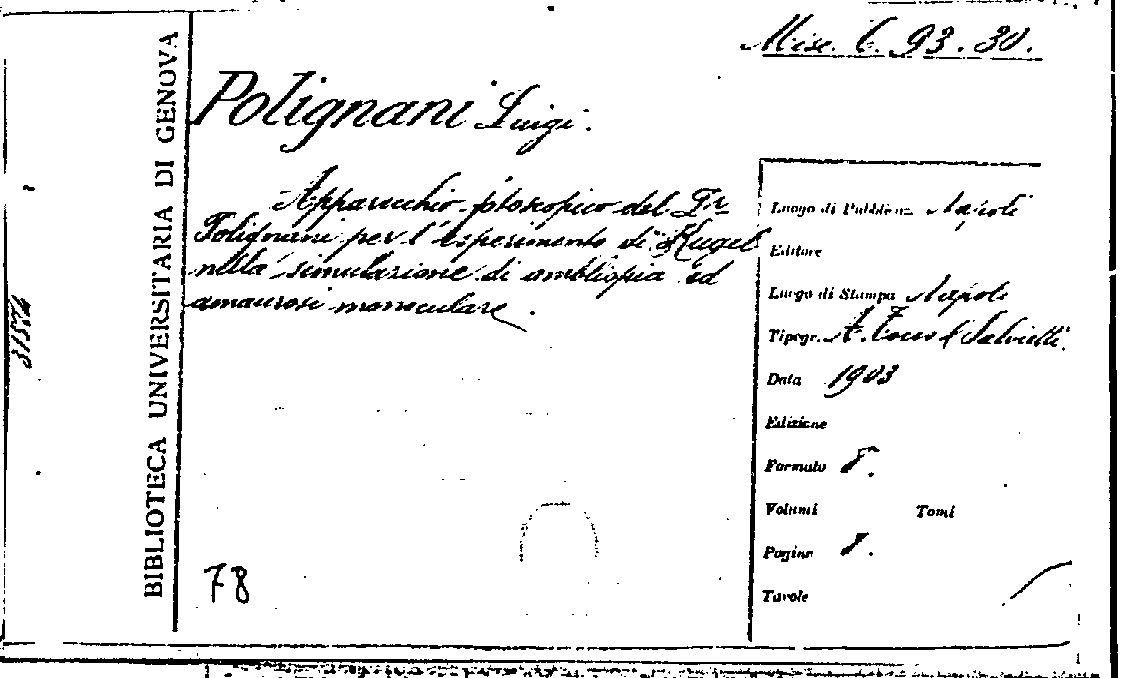 Misc. C. 93. 30.
BIBLIOTECA UNIVERSITARIA DI GENOVA
Polignani Luigi.
Apparecchio ptoscopico del Dr
Polignani per l'esperimento di Kugel
nella simulazione di ambliopia ed
amaurosi monoculare.
Luogo di Pubblicaz. Napoli
Editore
Luogo di Stampa Napoli
Tipogr. A. Tocco & Salvietti.
Data 1903
Edizione
Formato 8.
Volumi Tomi
Pagine 8.
Tavole
78